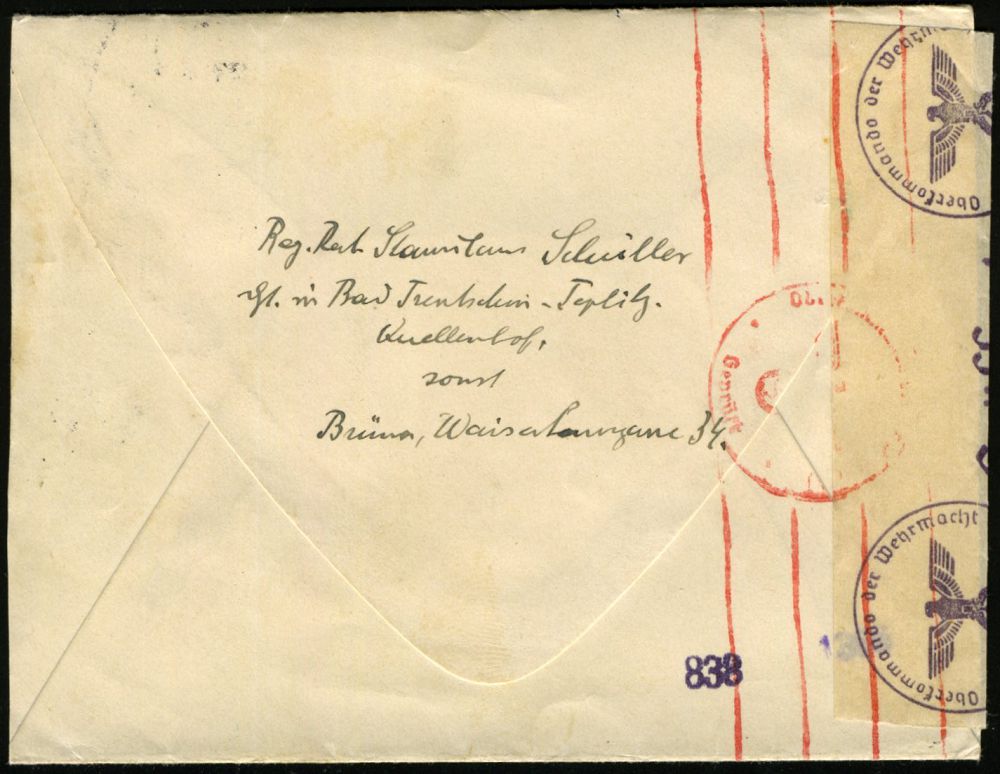 Reg. Rat Stanislaus Schüller
in Bad Trentschin-Teplitz.
Quellenhof,
sonst
Brünn, Waisenhausgasse 34.
Oberkommando der Wehrmacht
Geprüft
838
Oberkommando der Wehrmacht